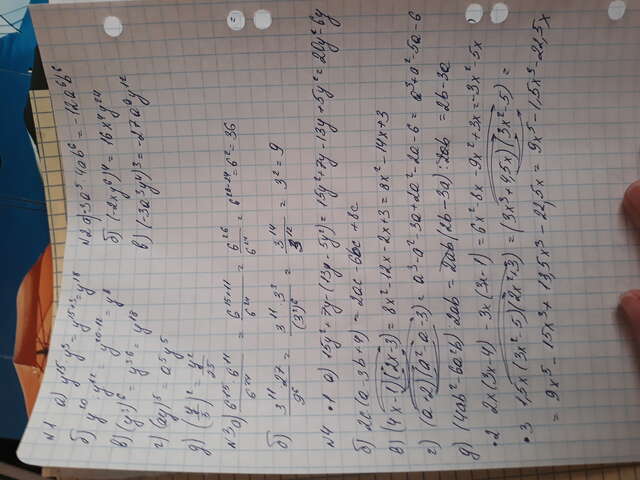 №1 а) y¹⁵·y³ = y¹⁵⁺³ = y¹⁸
б) y²⁰ : y¹² = y²⁰⁻¹² = y⁸
в) (y³)⁶ = y³·⁶ = y¹⁸
г) (ay)⁵ = a⁵y⁵
д) (y/5)² = y²/25
№2 а) -3a⁵·4ab⁶ = -12a⁶b⁶
б) (-2xy⁶)⁴ = 16x⁴y²⁴
в) (-3a³y⁴)³ = -27a⁹y¹²
№3 а) 6¹⁵·6¹¹/6²⁴ = 6¹⁵⁺¹¹/6²⁴ = 6²⁶/6²⁴ = 6²⁶⁻²⁴ = 6² = 36
б) 3¹¹·27/9⁶ = 3¹¹·3³/(3²)⁶ = 3¹⁴/3¹² = 3² = 9
№4 •1 а) 15y²+7y-(13y-5y²) = 15y²+7y-13y+5y² = 20y²-6y
б) 2c(a-3b+4) = 2ac-6bc+8c
в) (4x-1)(2x-3) = 8x²-12x-2x+3 = 8x²-14x+3
г) (a+2)(a²-a-3) = a³-a²-3a+2a²-2a-6 = a³+a²-5a-6
д) (4ab²-6a²b):2ab = 2ab(2b-3a):2ab = 2b-3a
•2 2x(3x-4)-3x(3x-1) = 6x²-8x-9x²+3x = -3x²-5x
•3 1,5x(3x²-5)(2x²+3) = (3x³+4,5x)(3x²-5) =
= 9x⁵-15x³+13,5x³-22,5x = 9x⁵-1,5x³-22,5x